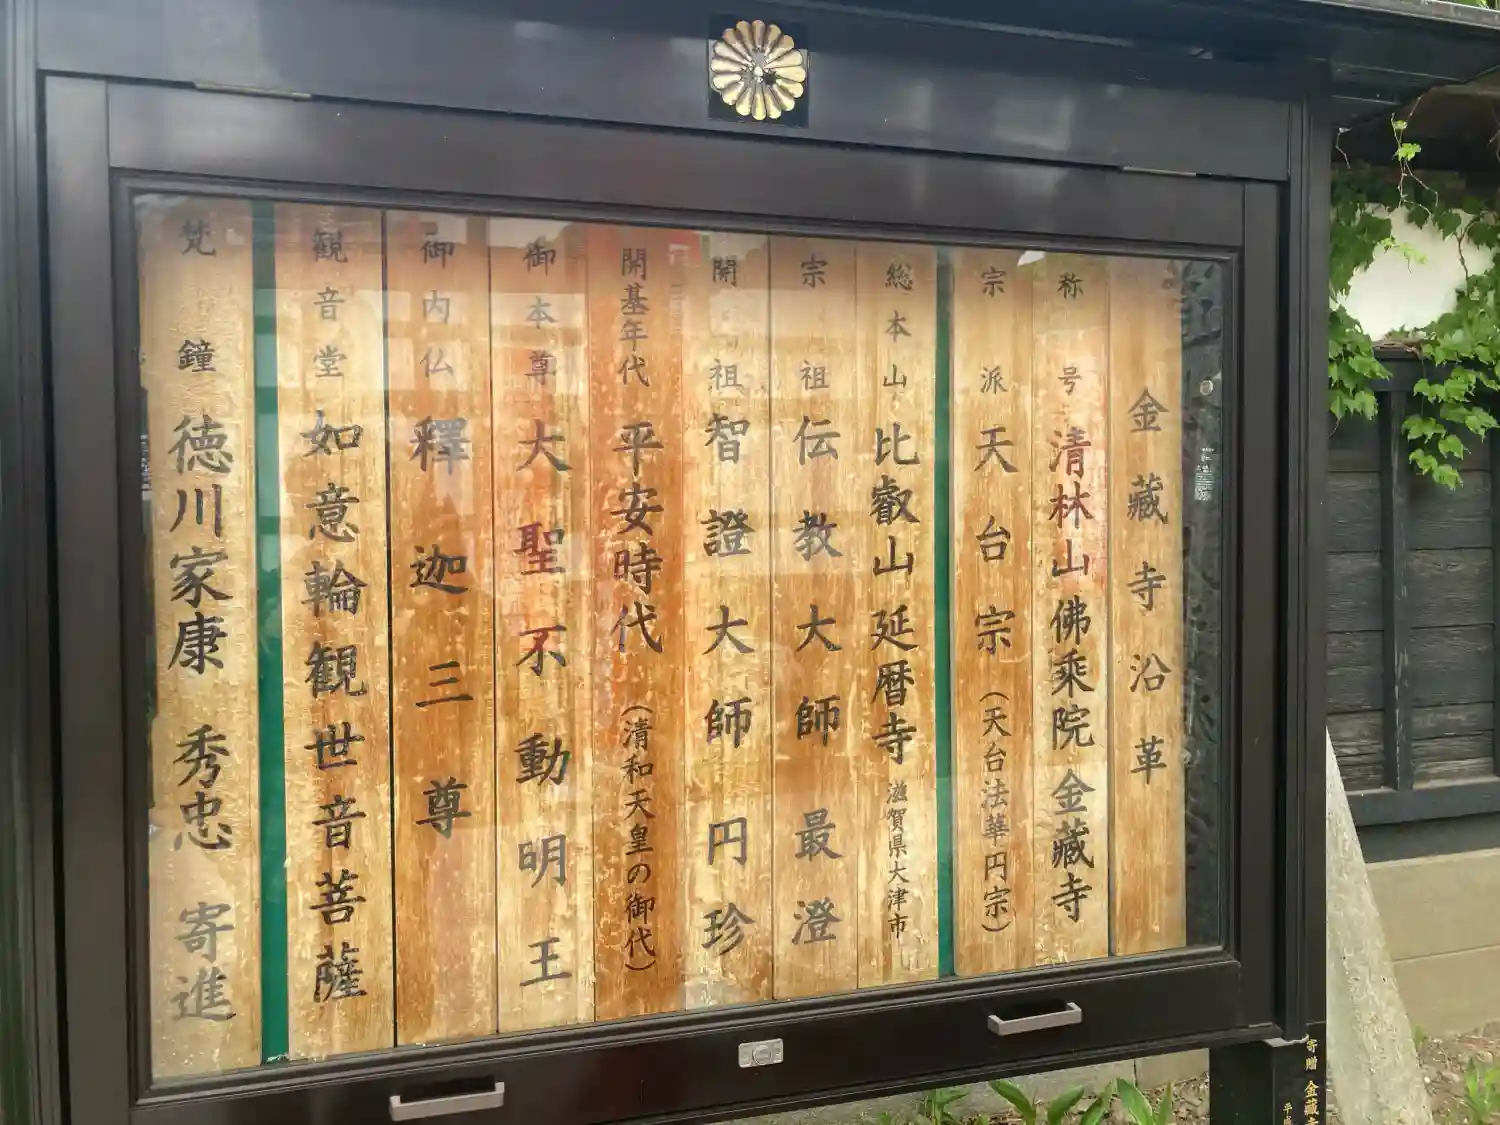 金藏寺沿革
称号 清林山佛乘院 金藏寺
宗派 天台宗（天台法華円宗）
総本山 比叡山延暦寺 滋賀県大津市
宗祖 伝教大師 最澄
開祖 智證大師 円珍
開基年代 平安時代（清和天皇の御代）
御本尊 大聖不動明王
御内仏 釋迦三尊
観音堂 如意輪観世音菩薩
梵鐘 徳川家康 秀忠 寄進
寄贈 金藏
平成